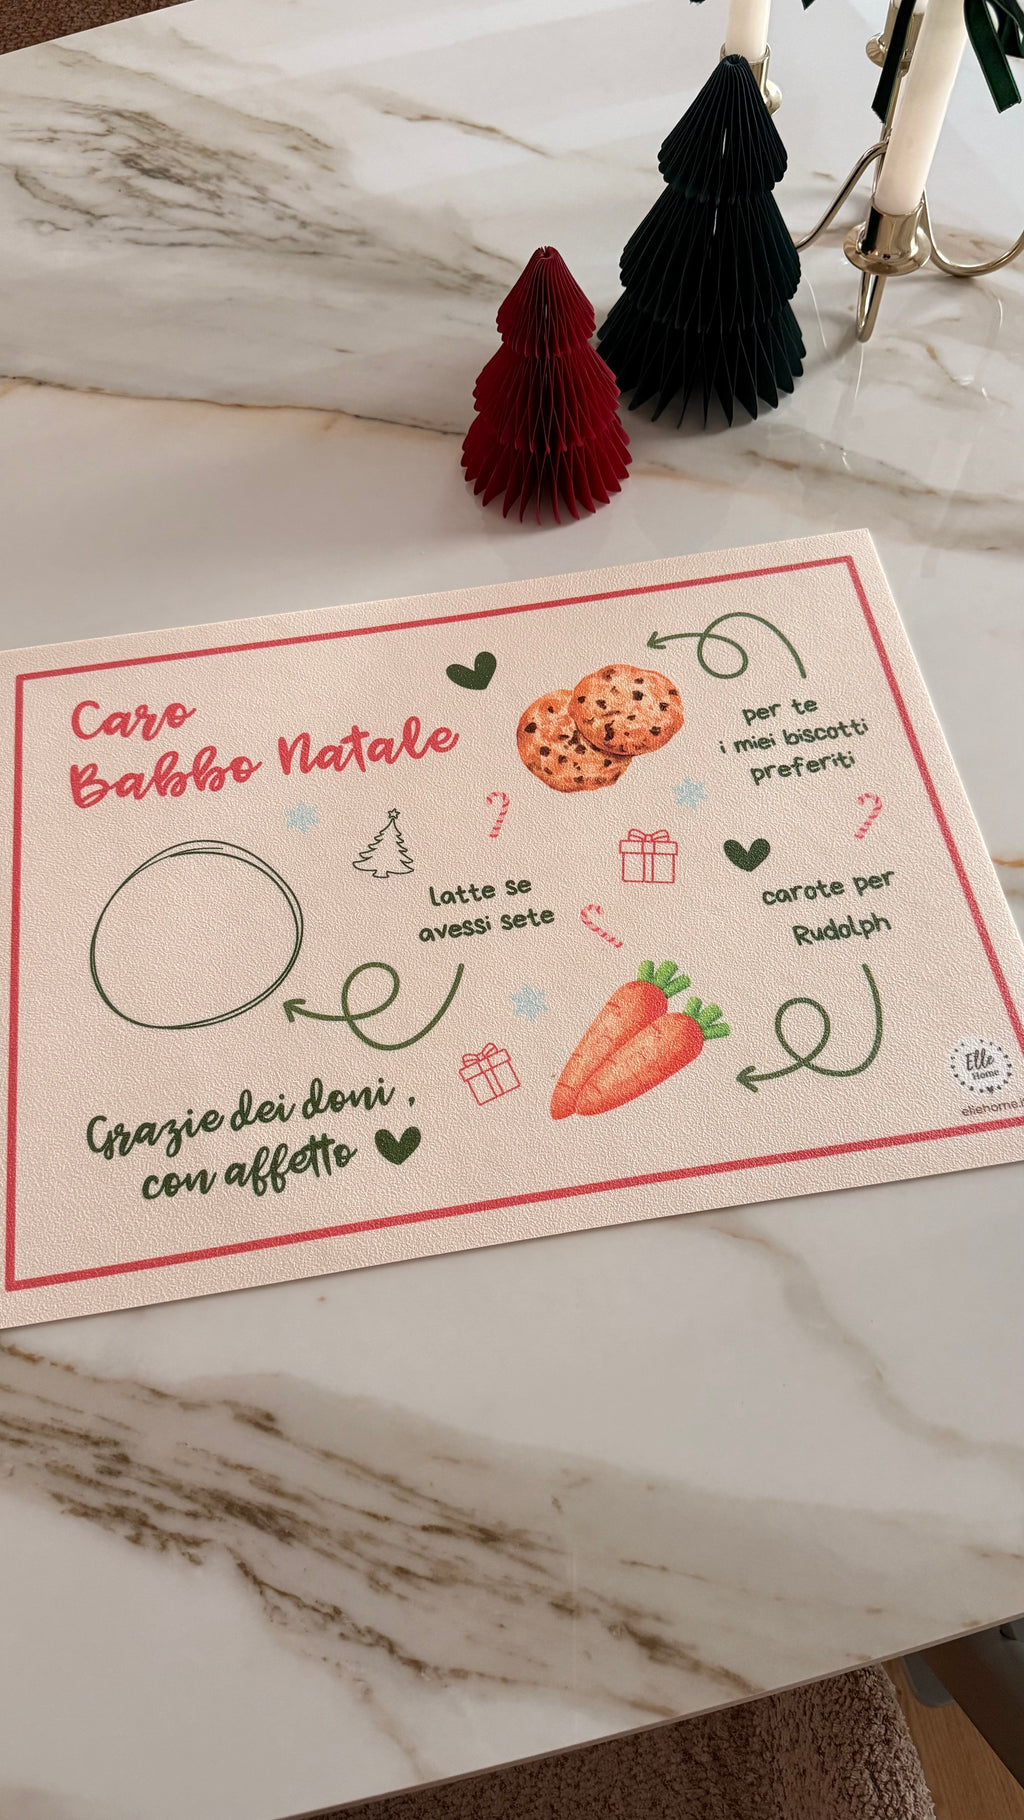 Caro
Babbo Natale
per te
i miei biscotti
preferiti
latte se
avessi sete
carote per
Rudolph
Grazie dei doni ,
con affetto
Elle
Home